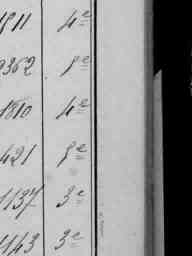 1811 4e
2362 8e
1810 4e
421 8e
1137 3e
1143 3e